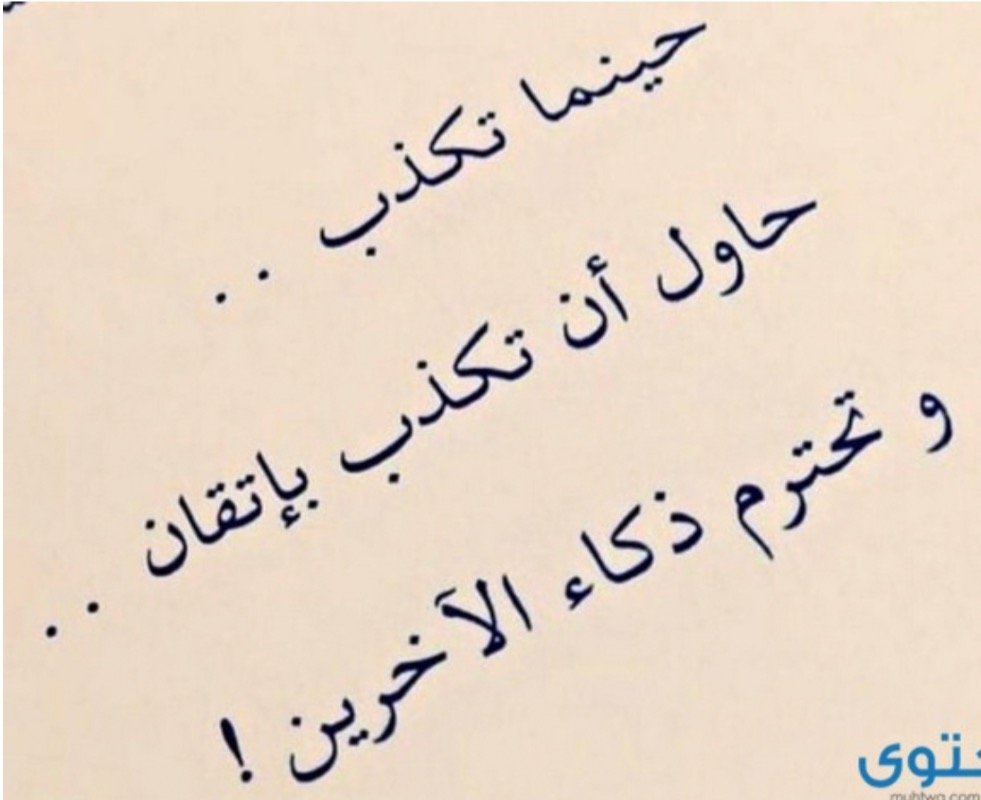 حينما تكذب . .
حاول أن تكذب بإتقان . .
و تحترم ذكاء الآخرين !
muhtwa.com